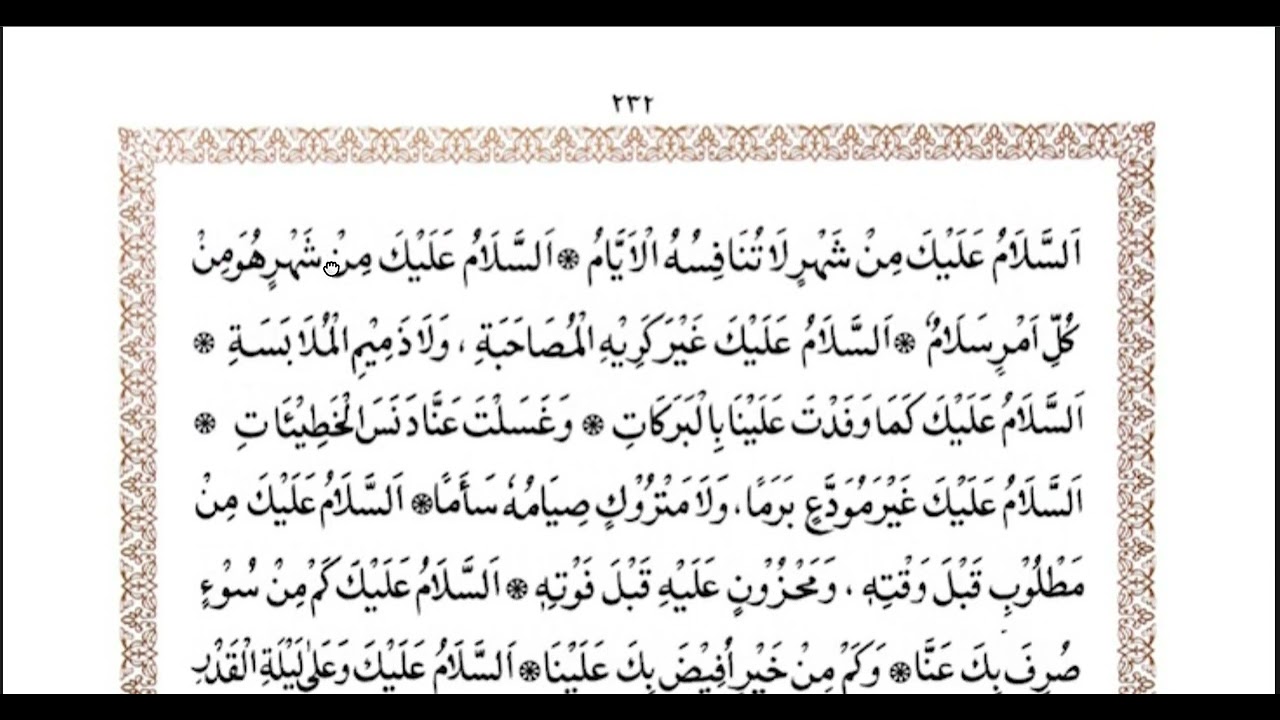 ٢٣٢
اَلسَّلَامُ عَلَيْكَ مِنْ شَهْرٍ لَا تُنَافِسُهُ الْاَيَّامُ ❋ اَلسَّلَامُ عَلَيْكَ مِنْ شَهْرٍ هُوَ مِنْ
كُلِّ اَمْرٍ سَلَامٌ ❋ اَلسَّلَامُ عَلَيْكَ غَيْرَ كَرِيْهِ الْمُصَاحَبَةِ ، وَلَا ذَمِيْمِ الْمُلَابَسَةِ ❋
اَلسَّلَامُ عَلَيْكَ كَمَا وَفَدْتَ عَلَيْنَا بِالْبَرَكَاتِ ❋ وَغَسَلْتَ عَنَّا دَنَسَ الْخَطِيْئَاتِ ❋
اَلسَّلَامُ عَلَيْكَ غَيْرَ مُوَدَّعٍ بَرَمًا، وَلَا مَتْرُوْكٍ صِيَامُهٗ سَأَمًا ❋ اَلسَّلَامُ عَلَيْكَ مِنْ
مَطْلُوْبٍ قَبْلَ وَقْتِهٖ ، وَمَحْزُوْنٍ عَلَيْهِ قَبْلَ فَوْتِهٖ ❋ اَلسَّلَامُ عَلَيْكَ كَمْ مِنْ سُوْءٍ
صُرِفَ بِكَ عَنَّا ❋ وَكَمْ مِنْ خَيْرٍ اُفِيْضَ بِكَ عَلَيْنَا ❋ اَلسَّلَامُ عَلَيْكَ وَعَلٰى لَيْلَةِ الْقَدْرِ